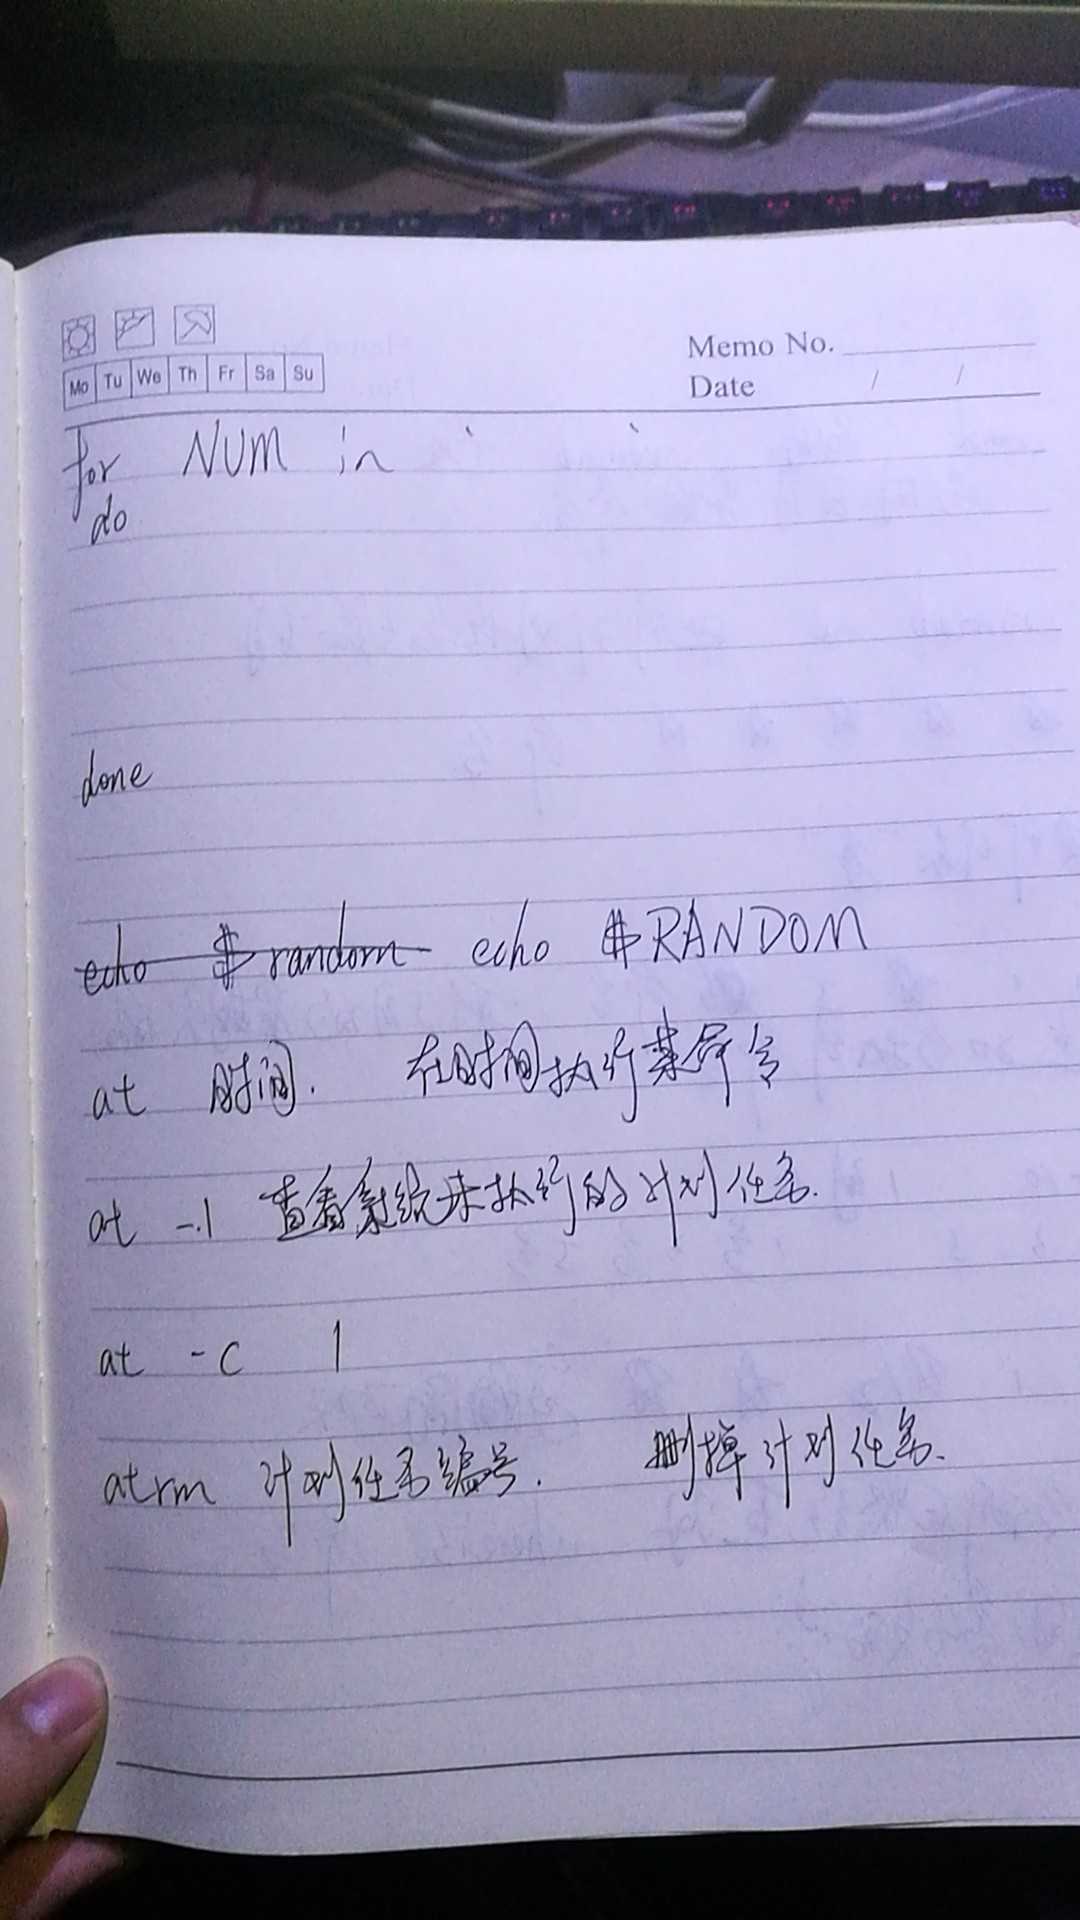 Mo Tu We Th Fr Sa Su
Memo No.
Date / /
for NUM in ` `
do
done
echo $random echo $RANDOM
at 时间. 在时间执行某命令
at -l 查看系统未执行的计划任务.
at -c 1
atrm 计划任务编号. 删掉计划任务.